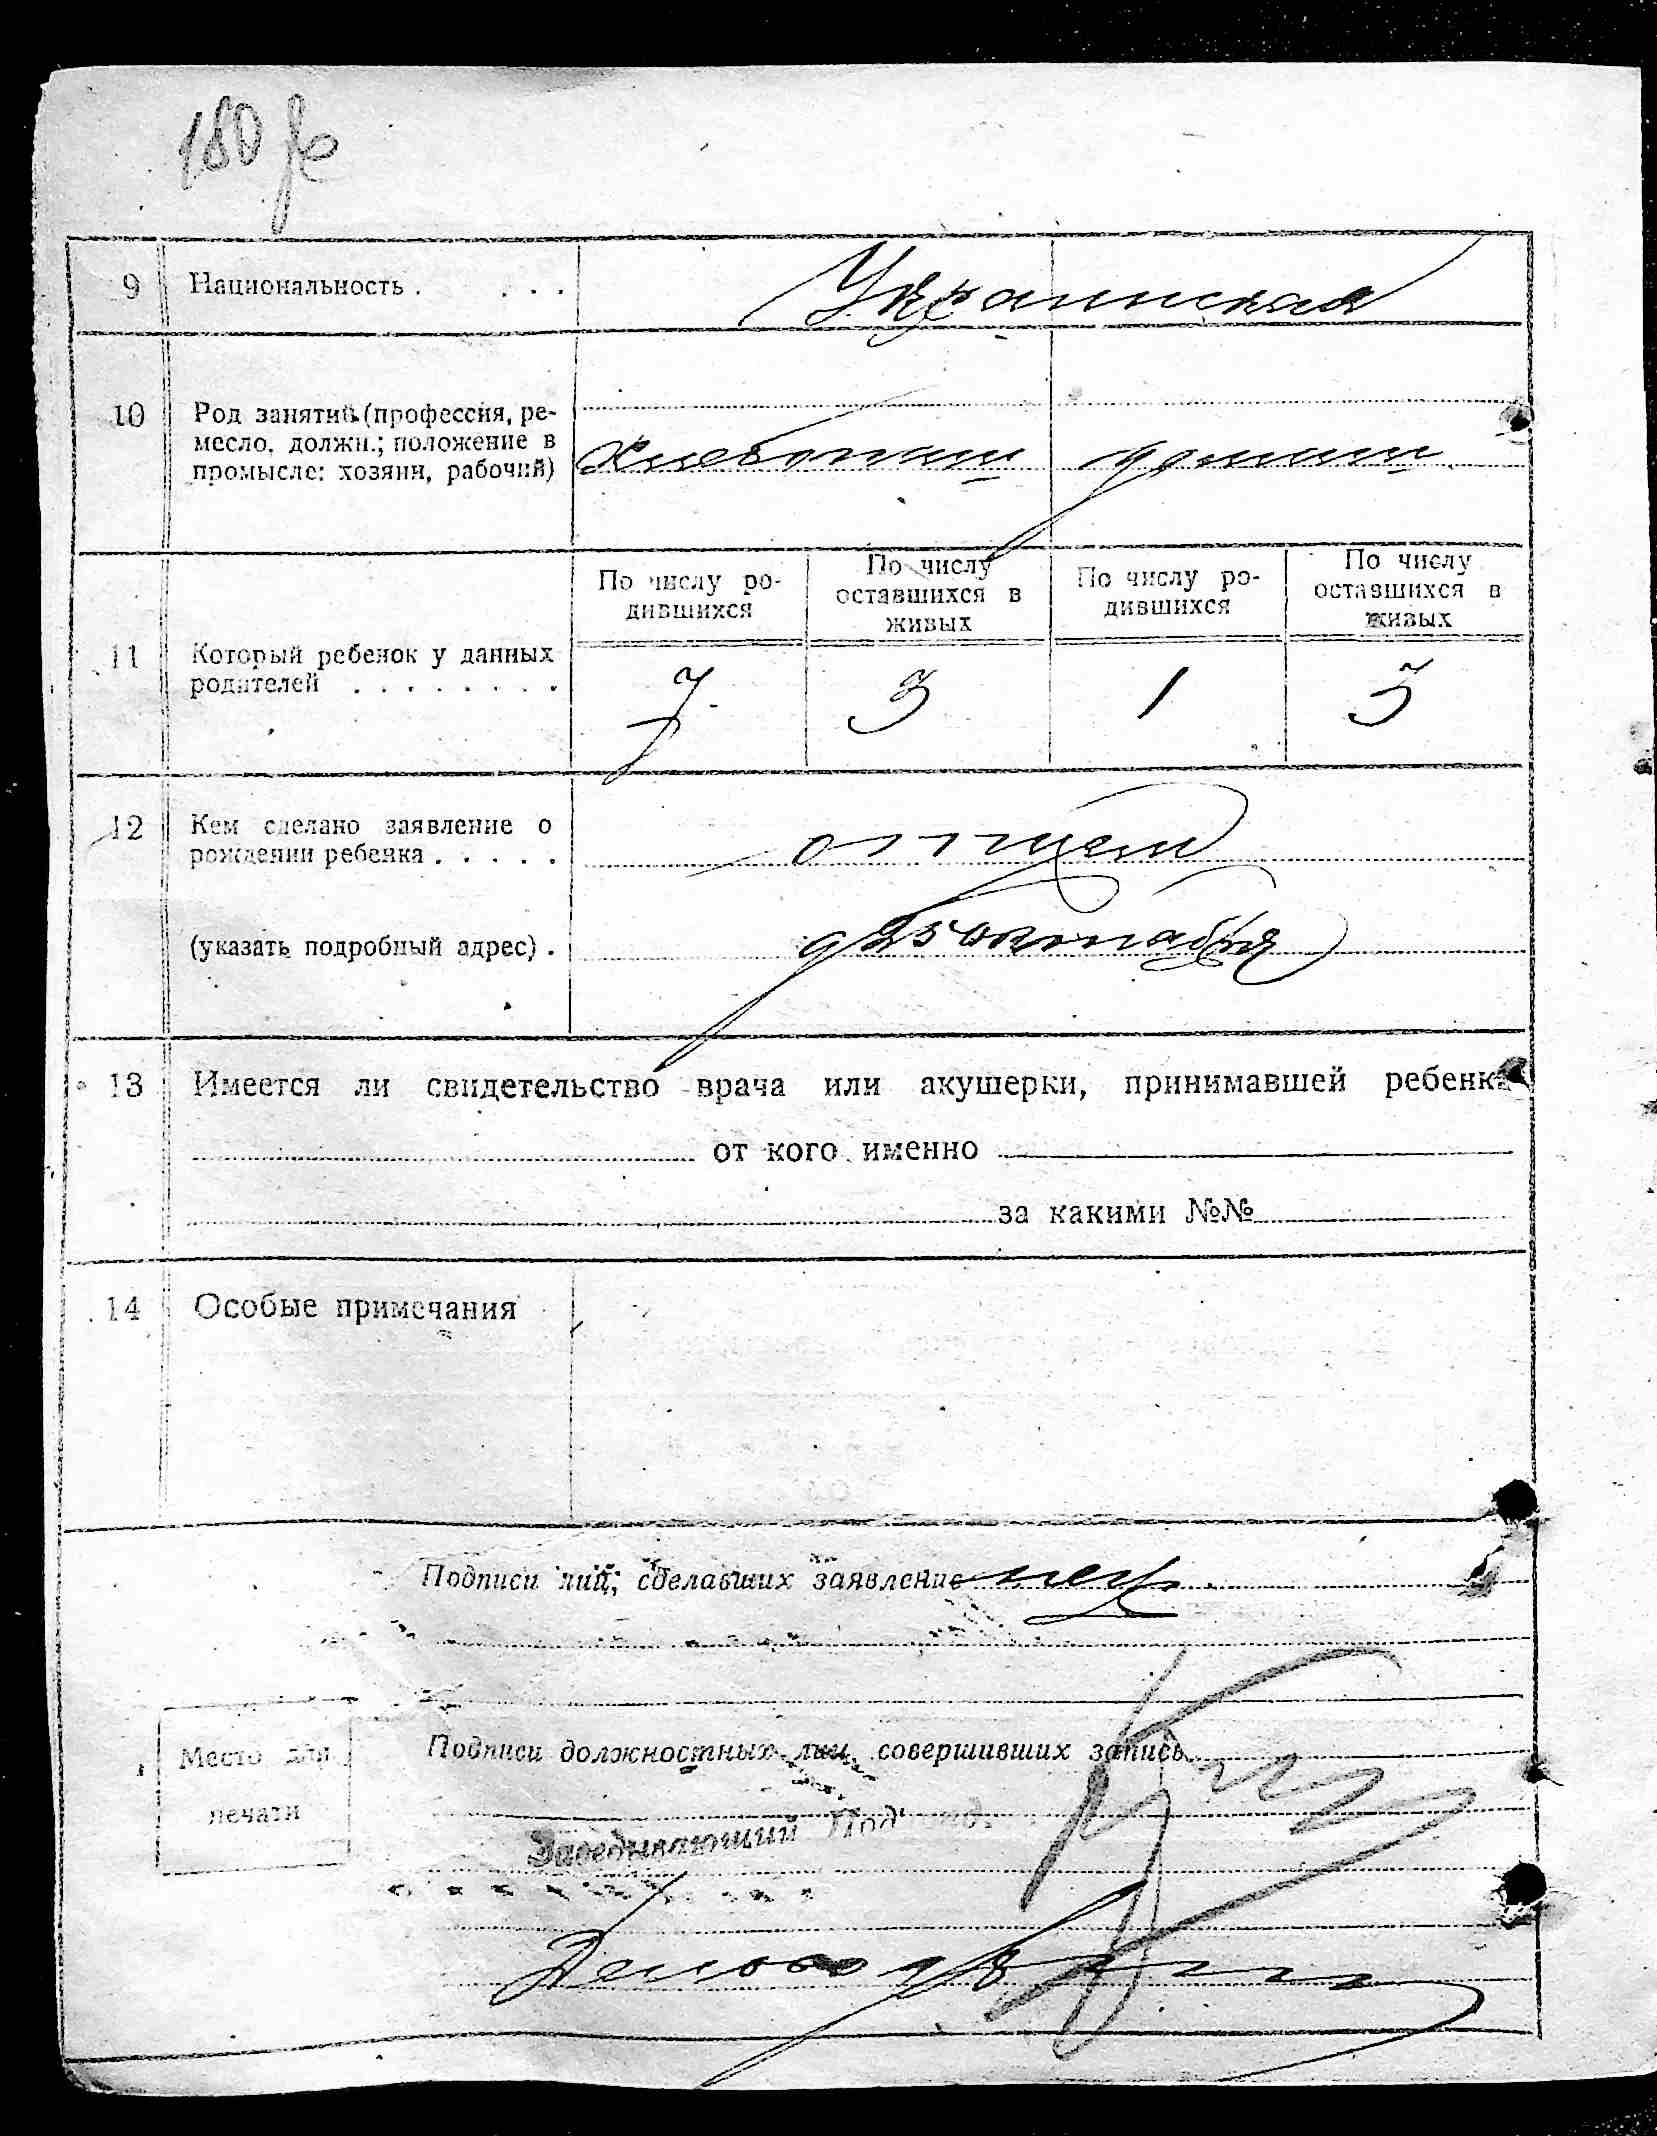 180
9 Национальность . . . . Украинская
10 Род занятий (профессия, ре-
месло, должн.; положение в
промысле: хозяин, рабочий)
Хлебопаш домаш
По числу ро-
дившихся
По числу
оставшихся в
живых
По числу ро-
дившихся
По числу
оставшихся в
живых
11 Который ребенок у данных
родителей . . . . . . . .
7 3 1 3
12 Кем сделано заявление о
рождении ребенка . . . . . отцем
(указать подробный адрес) . 25 октября
13 Имеется ли свидетельство врача или акушерки, принимавшей ребенка
от кого именно
за какими №№
14 Особые примечания
Подписи лиц, сделавших заявление
Место для
печати
Подписи должностных лиц, совершивших запись
Заведывающий Под